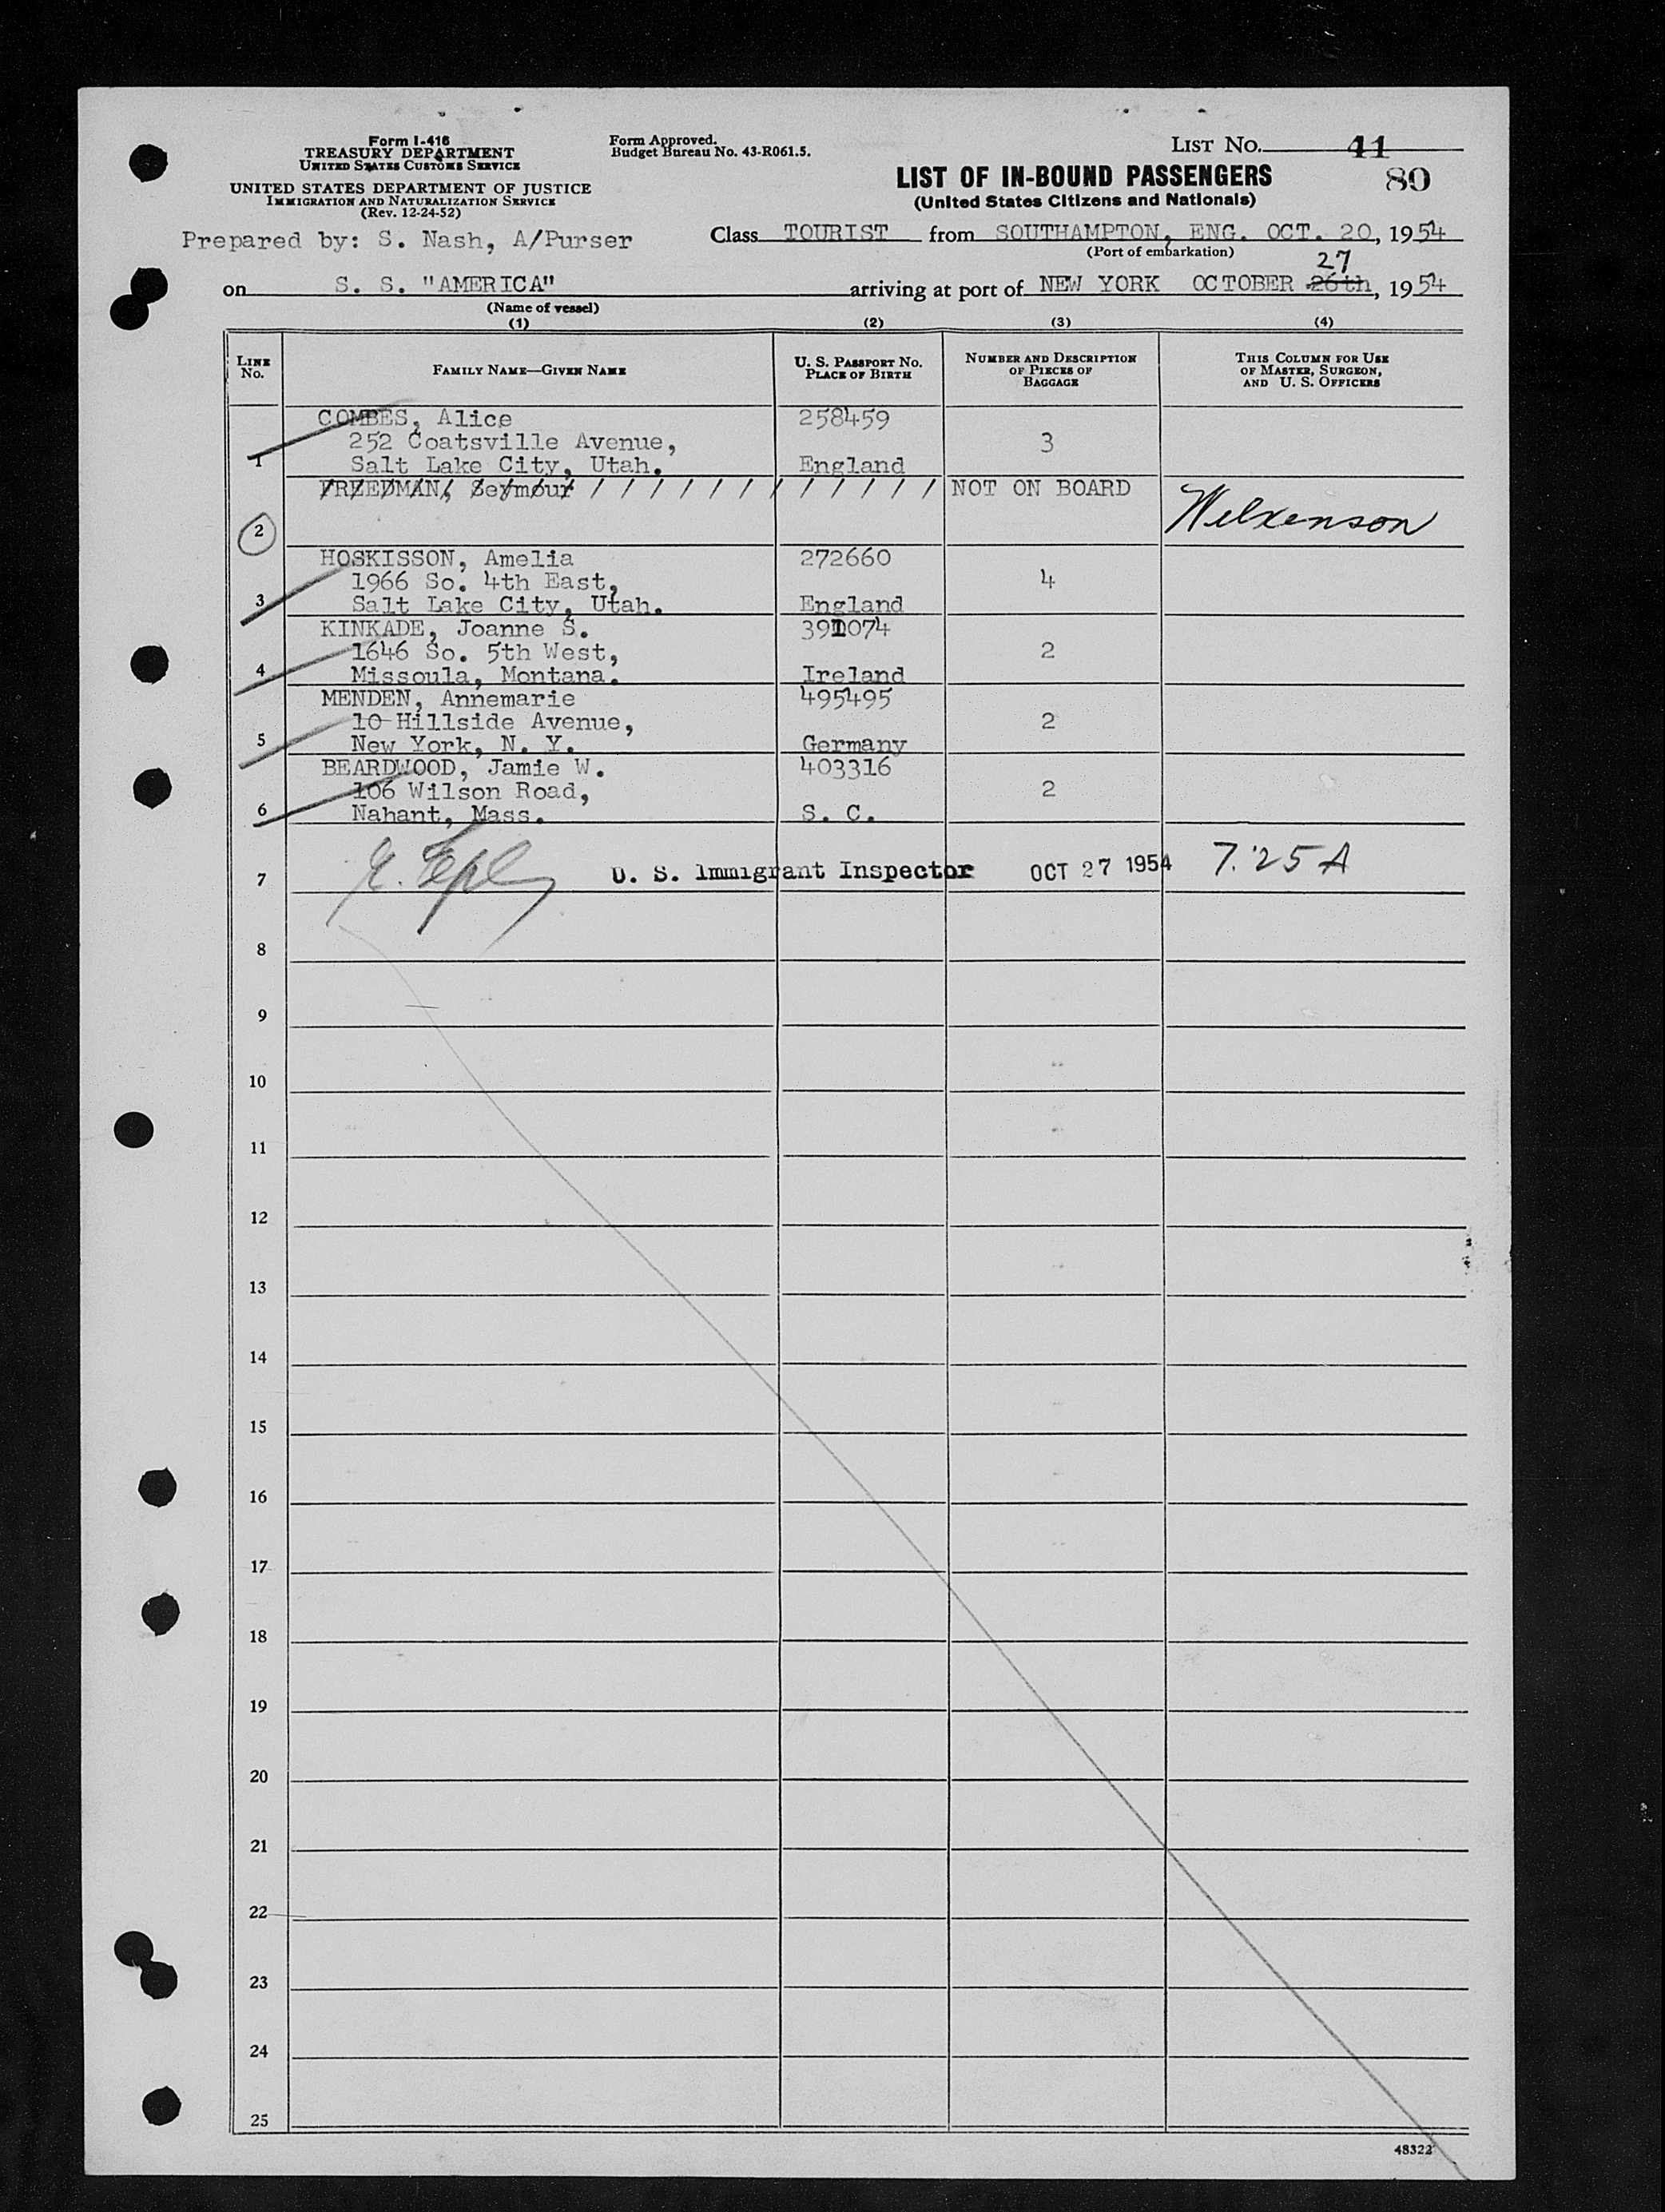 Form I-416
TREASURY DEPARTMENT
UNITED STATES CUSTOMS SERVICE
UNITED STATES DEPARTMENT OF JUSTICE
IMMIGRATION AND NATURALIZATION SERVICE
(Rev. 12-24-52)
Form Approved.
Budget Bureau No. 43-R061.5.
LIST No. 41
80
LIST OF IN-BOUND PASSENGERS
(United States Citizens and Nationals)
Prepared by: S. Nash, A/Purser
Class TOURIST from SOUTHAMPTON, ENG. OCT. 20, 1954
(Port of embarkation)
27
on S. S. "AMERICA" arriving at port of NEW YORK OCTOBER 26th, 1954
(Name of vessel)
(1) (2) (3) (4)
LINE No.
FAMILY NAME—GIVEN NAME
U. S. PASSPORT No.
PLACE OF BIRTH
NUMBER AND DESCRIPTION
OF PIECES OF
BAGGAGE
THIS COLUMN FOR USE
OF MASTER, SURGEON,
AND U. S. OFFICERS
COMBES, Alice 258459
252 Coatsville Avenue, 3
1 Salt Lake City, Utah. England
FREEDMAN, Seymour / / / / / / / / / / / / / NOT ON BOARD
2 Wilkenson
HOSKISSON, Amelia 272660
1966 So. 4th East, 4
3 Salt Lake City, Utah. England
KINKADE, Joanne S. 391074
1646 So. 5th West, 2
4 Missoula, Montana. Ireland
MENDEN, Annemarie 495495
10 Hillside Avenue, 2
5 New York, N. Y. Germany
BEARDWOOD, Jamie W. 403316
106 Wilson Road, 2
6 Nahant, Mass. S. C.
7 U. S. Immigrant Inspector OCT 27 1954 7:25 A
8
9
10
11
12
13
14
15
16
17
18
19
20
21
22
23
24
25
48322